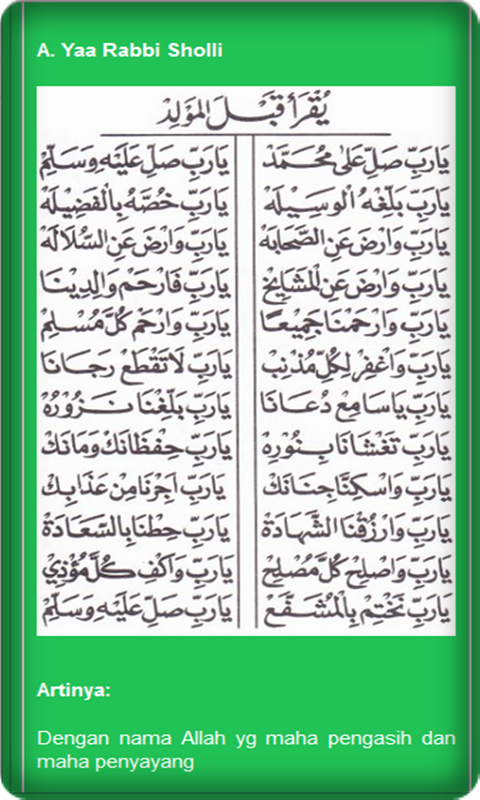 A. Yaa Rabbi Sholli
يُقْرَأُ قَبْلَ الْمَوْلِدِ
يَارَبِّ صَلِّ عَلَى مُحَمَّدْ يَارَبِّ صَلِّ عَلَيْهِ وَسَلِّمْ
يَارَبِّ بَلِّغْهُ الْوَسِيْلَهْ يَارَبِّ خُصَّهُ بِالْفَضِيْلَهْ
يَارَبِّ وَارْضَ عَنِ الصَّحَابَهْ يَارَبِّ وَارْضَ عَنِ السُّلَالَهْ
يَارَبِّ وَارْضَ عَنِ الْمَشَايِخْ يَارَبِّ فَارْحَمْ وَالِدِيْنَا
يَارَبِّ وَارْحَمْنَا جَمِيْعًا يَارَبِّ وَارْحَمْ كُلَّ مُسْلِمْ
يَارَبِّ وَاغْفِرْ لِكُلِّ مُذْنِبْ يَارَبِّ لَا تَقْطَعْ رَجَانَا
يَارَبِّ يَاسَامِعْ دُعَانَا يَارَبِّ بَلِّغْنَا نَزُوْرُهْ
يَارَبِّ تَغْشَانَا بِنُوْرِهْ يَارَبِّ حِفْظَانَكْ وَمَانَكْ
يَارَبِّ وَاسْكِنَّا جِنَانَكْ يَارَبِّ اَجِرْنَا مِنْ عَذَابِكْ
يَارَبِّ وَارْزُقْنَا الشَّهَادَةْ يَارَبِّ حِطْنَا بِالسَّعَادَةْ
يَارَبِّ وَاصْلِحْ كُلَّ مُصْلِحْ يَارَبِّ وَاكْفِ كُلَّ مُؤْذِيْ
يَارَبِّ نَخْتِمْ بِالْمُشَفَّعْ يَارَبِّ صَلِّ عَلَيْهِ وَسَلِّمْ
Artinya:
Dengan nama Allah yg maha pengasih dan
maha penyayang